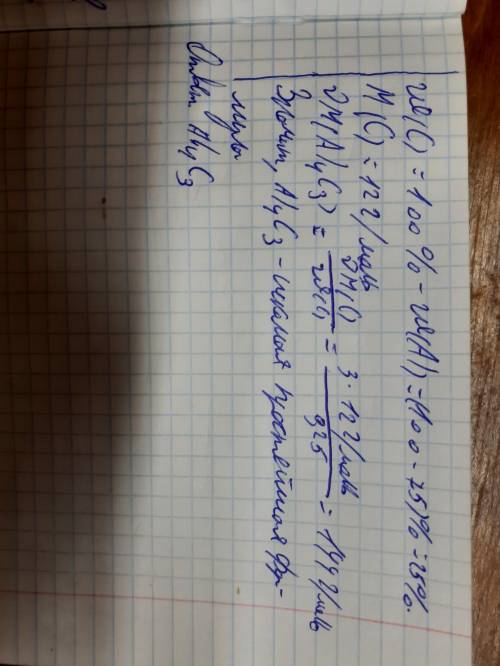 w(C) = 100% - w(Al) = (100 - 75)% = 25%.
M(C) = 12 г/моль
M(Al4C3) = M(C) / w(C) = 3·12 г/моль / 0,25 = 144 г/моль
Значит, Al4C3 - искомая простейшая фор-
мула
Ответ Al4C3